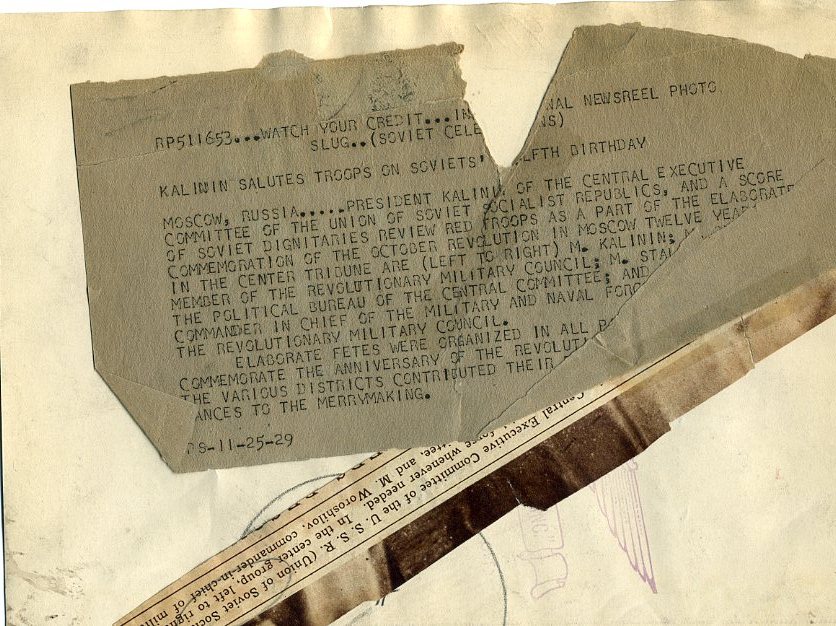 RP511653...WATCH YOUR CREDIT...IN NAL NEWSREEL PHOTO
SLUG..(SOVIET CELE NS)
KALININ SALUTES TROOPS ON SOVIETS' LFTH BIRTHDAY
MOSCOW, RUSSIA.....PRESIDENT KALINI OF THE CENTRAL EXECUTIVE
COMMITTEE OF THE UNION OF SOVIET SOCIALIST REPUBLICS, AND A SCORE
OF SOVIET DIGNITARIES REVIEW RED TROOPS AS A PART OF THE ELABORATE
COMMEMORATION OF THE OCTOBER REVOLUTION IN MOSCOW TWELVE YEA
IN THE CENTER TRIBUNE ARE (LEFT TO RIGHT) M. KALININ; M
MEMBER OF THE REVOLUTIONARY MILITARY COUNCIL; M. STAL
THE POLITICAL BUREAU OF THE CENTRAL COMMITTEE; AND
COMMANDER IN CHIEF OF THE MILITARY AND NAVAL FORC
THE REVOLUTIONARY MILITARY COUNCIL.
ELABORATE FETES WERE ORGANIZED IN ALL
COMMEMORATE THE ANNIVERSARY OF THE REVOLUTI
THE VARIOUS DISTRICTS CONTRIBUTED THEIR
ANCES TO THE MERRYMAKING.
S-11-25-29
Central Executive Committee of the U. S. S. R. (Union of Soviet Soci
force whenever needed. In the center group, left to righ
ttee, and M. Woroshilov, commander-in-chief of mili